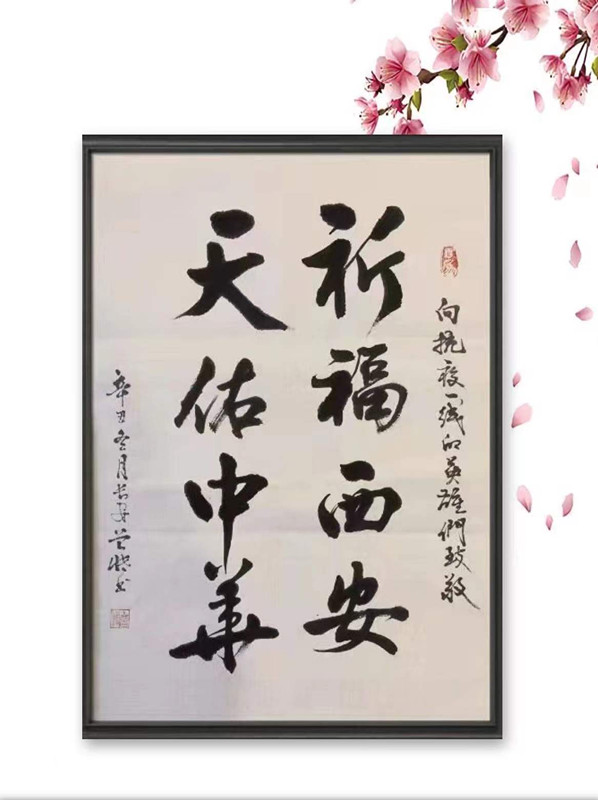 向抗疫一线的英雄們致敬
祈福西安
天佑中華
辛丑冬月